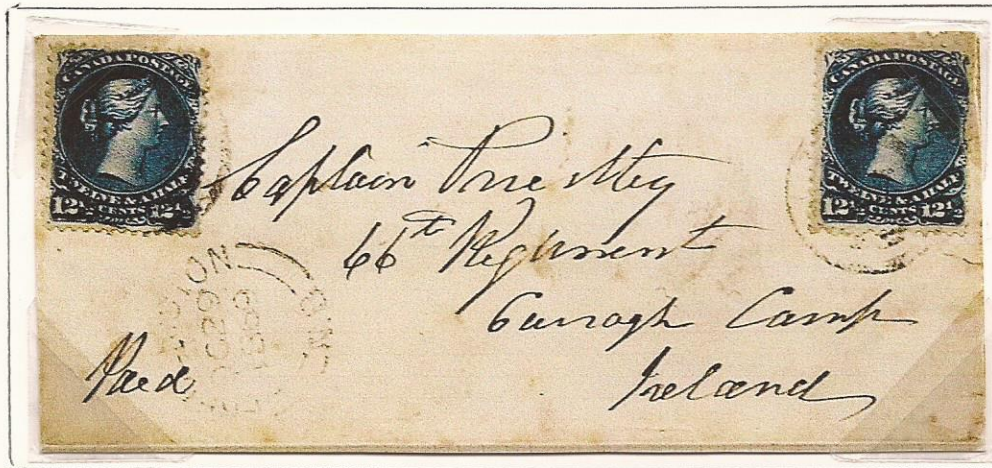 CANADA POSTAGE
TWELVE & A HALF
12½ CENTS 12½
CANADA POSTAGE
TWELVE & A HALF
12½ CENTS 12½
Captain
66th Regiment
Currogh Camp
Ireland
Paid